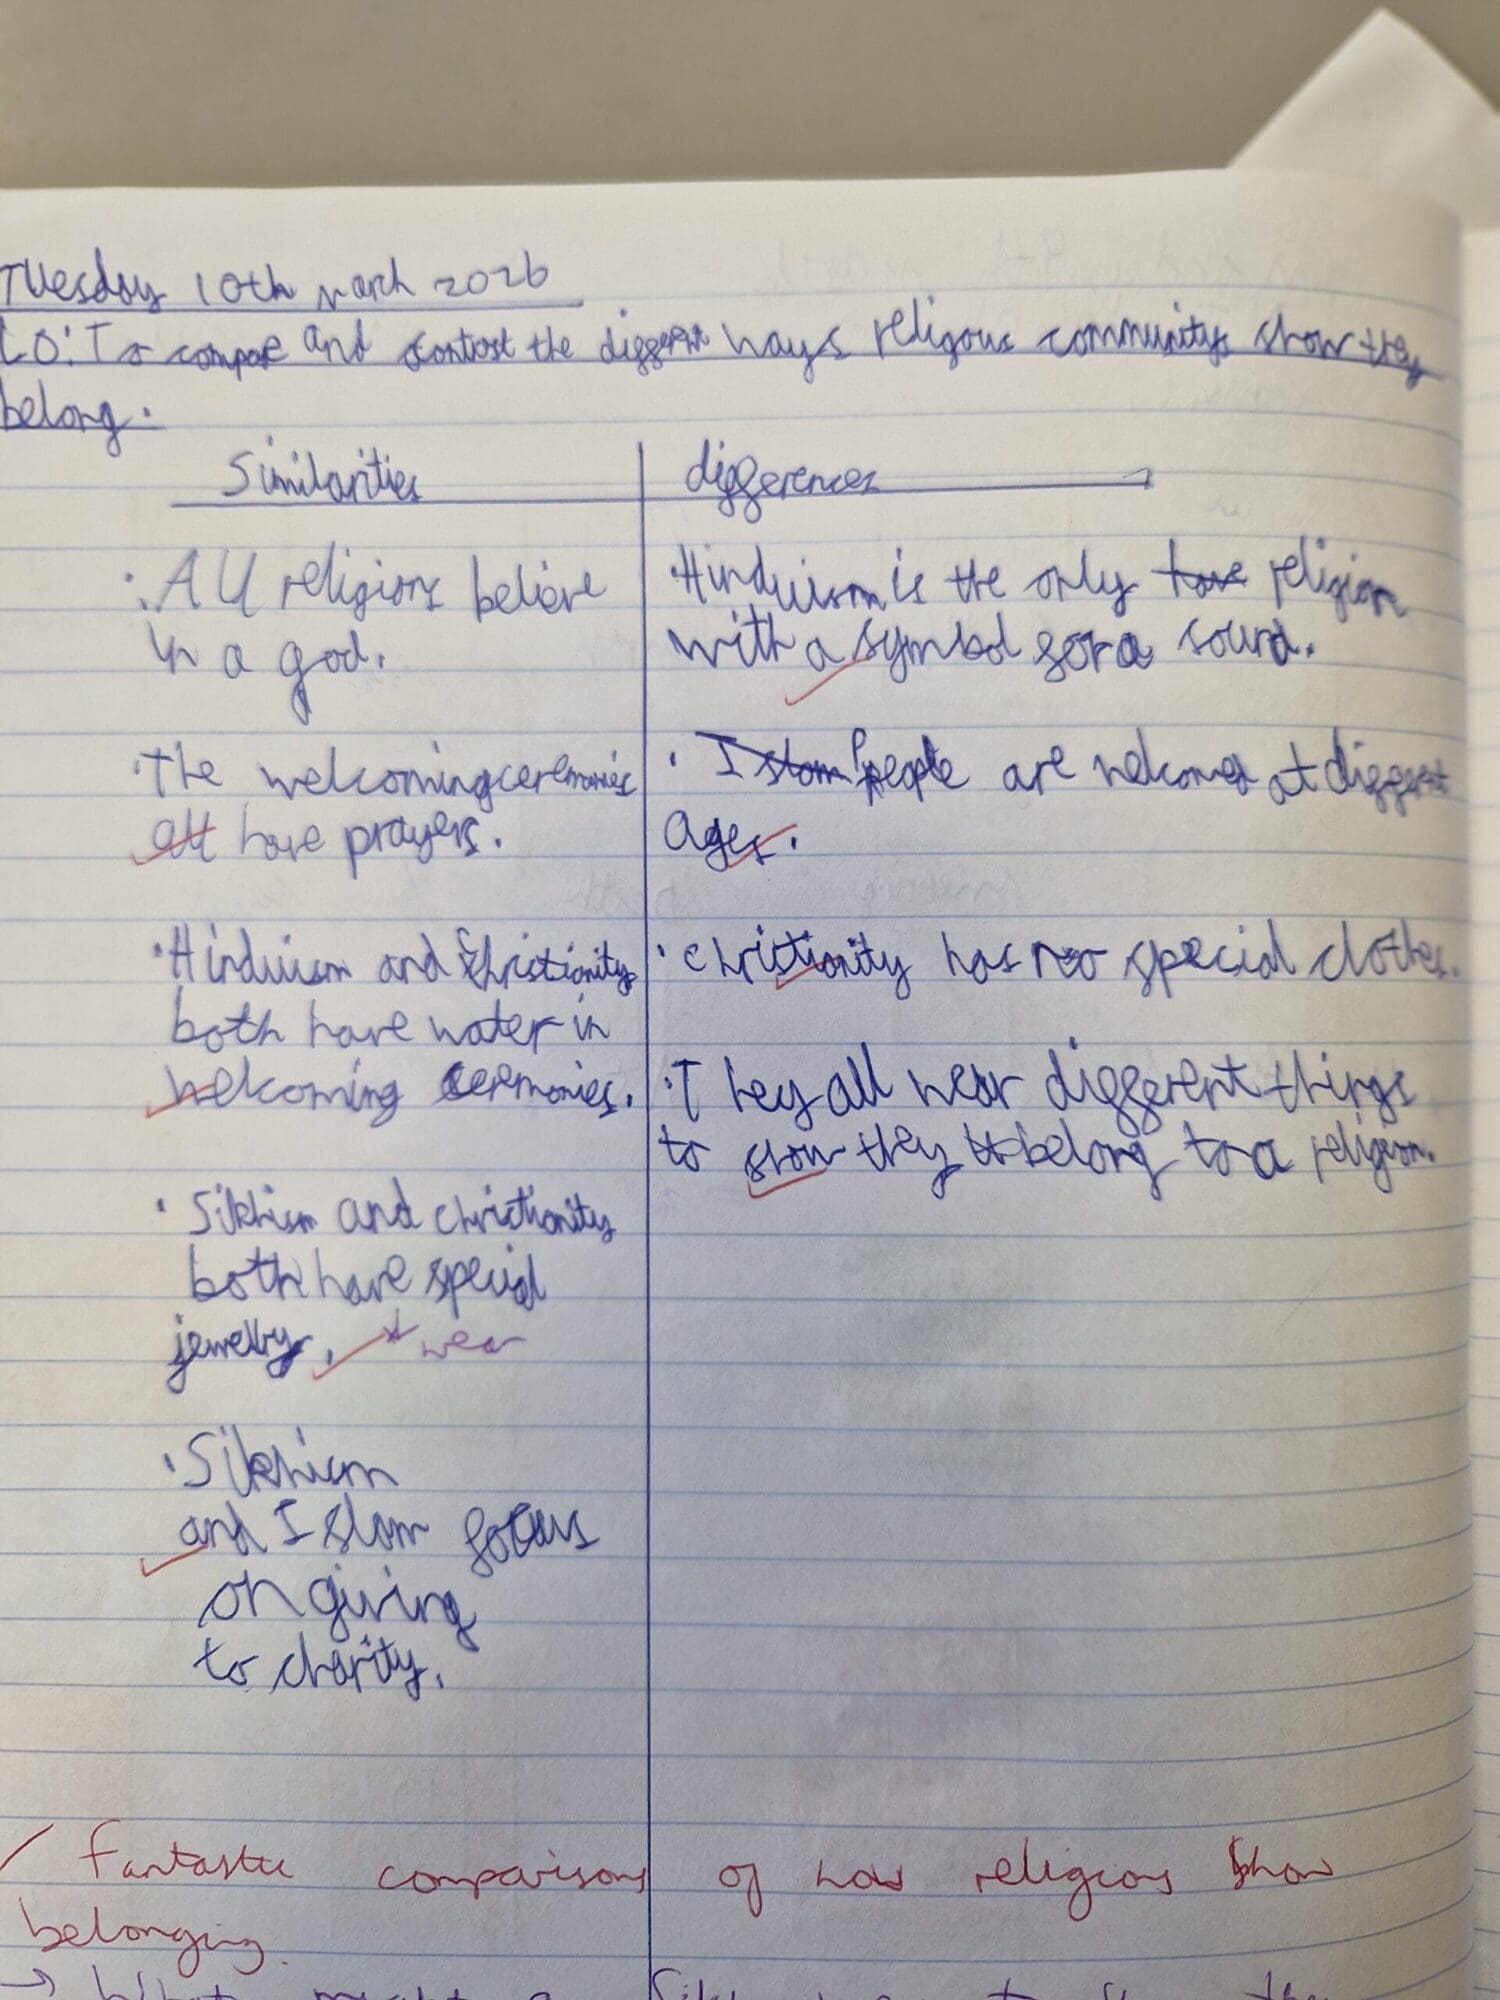 Tuesday 10th March 2026
LO: To compare and contrast the different ways religious communitys show they
belong.
Similarities
differences
· All religions believe
in a god.
· The welcoming ceremonies
all have prayers.
· Hinduism and Christianity
both have water in
welcoming ceremonies.
· Sikhism and christianity
both have special
jewelry. * wear
· Sikhism
and Islam focus
on giving
to charity.
· Hinduism is the only have religion
with a symbol for a sound.
· Islam People are welcomed at different
ages.
· christianity has no special clothes.
· They all wear different things
to show they belong to a religion.
Fantastic comparisons of how religions show
belonging.
→ What might a Sikh